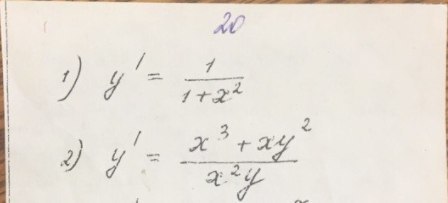 20
1) y' = 1/(1+x²)
2) y' = (x³ + xy²)/(x²y)